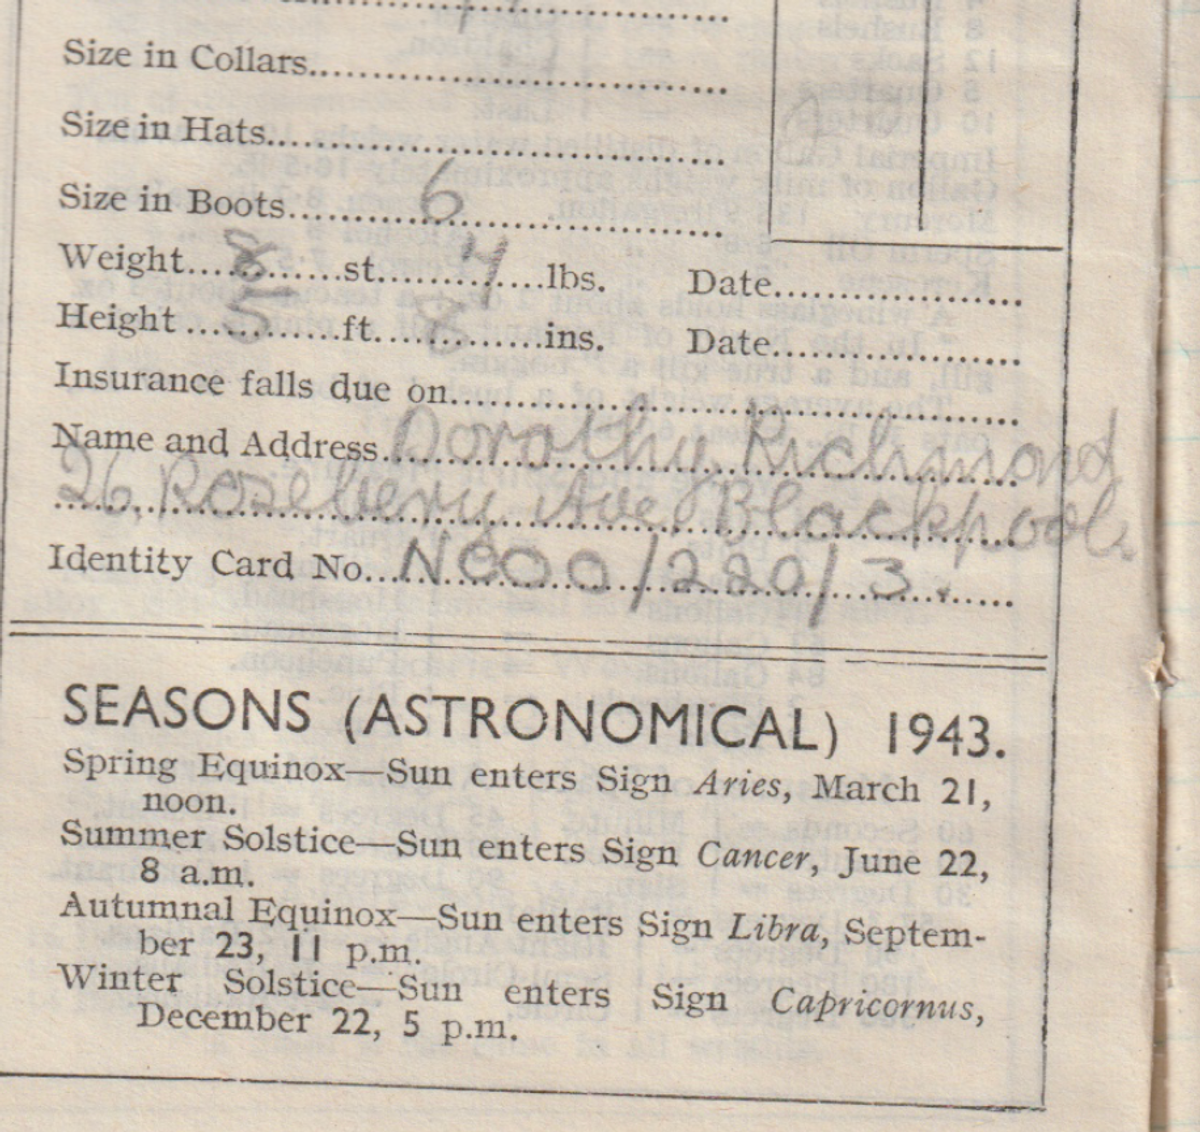 Size in Collars
Size in Hats
Size in Boots 6
Weight 8 st. 4 lbs. Date
Height 5 ft. 8 ins. Date
Insurance falls due on
Name and Address Dorothy Richmond
26, Rosebery Ave, Blackpool.
Identity Card No. /220/3.
SEASONS (ASTRONOMICAL) 1943.
Spring Equinox—Sun enters Sign Aries, March 21,
noon.
Summer Solstice—Sun enters Sign Cancer, June 22,
8 a.m.
Autumnal Equinox—Sun enters Sign Libra, Septem-
ber 23, 11 p.m.
Winter Solstice—Sun enters Sign Capricornus,
December 22, 5 p.m.